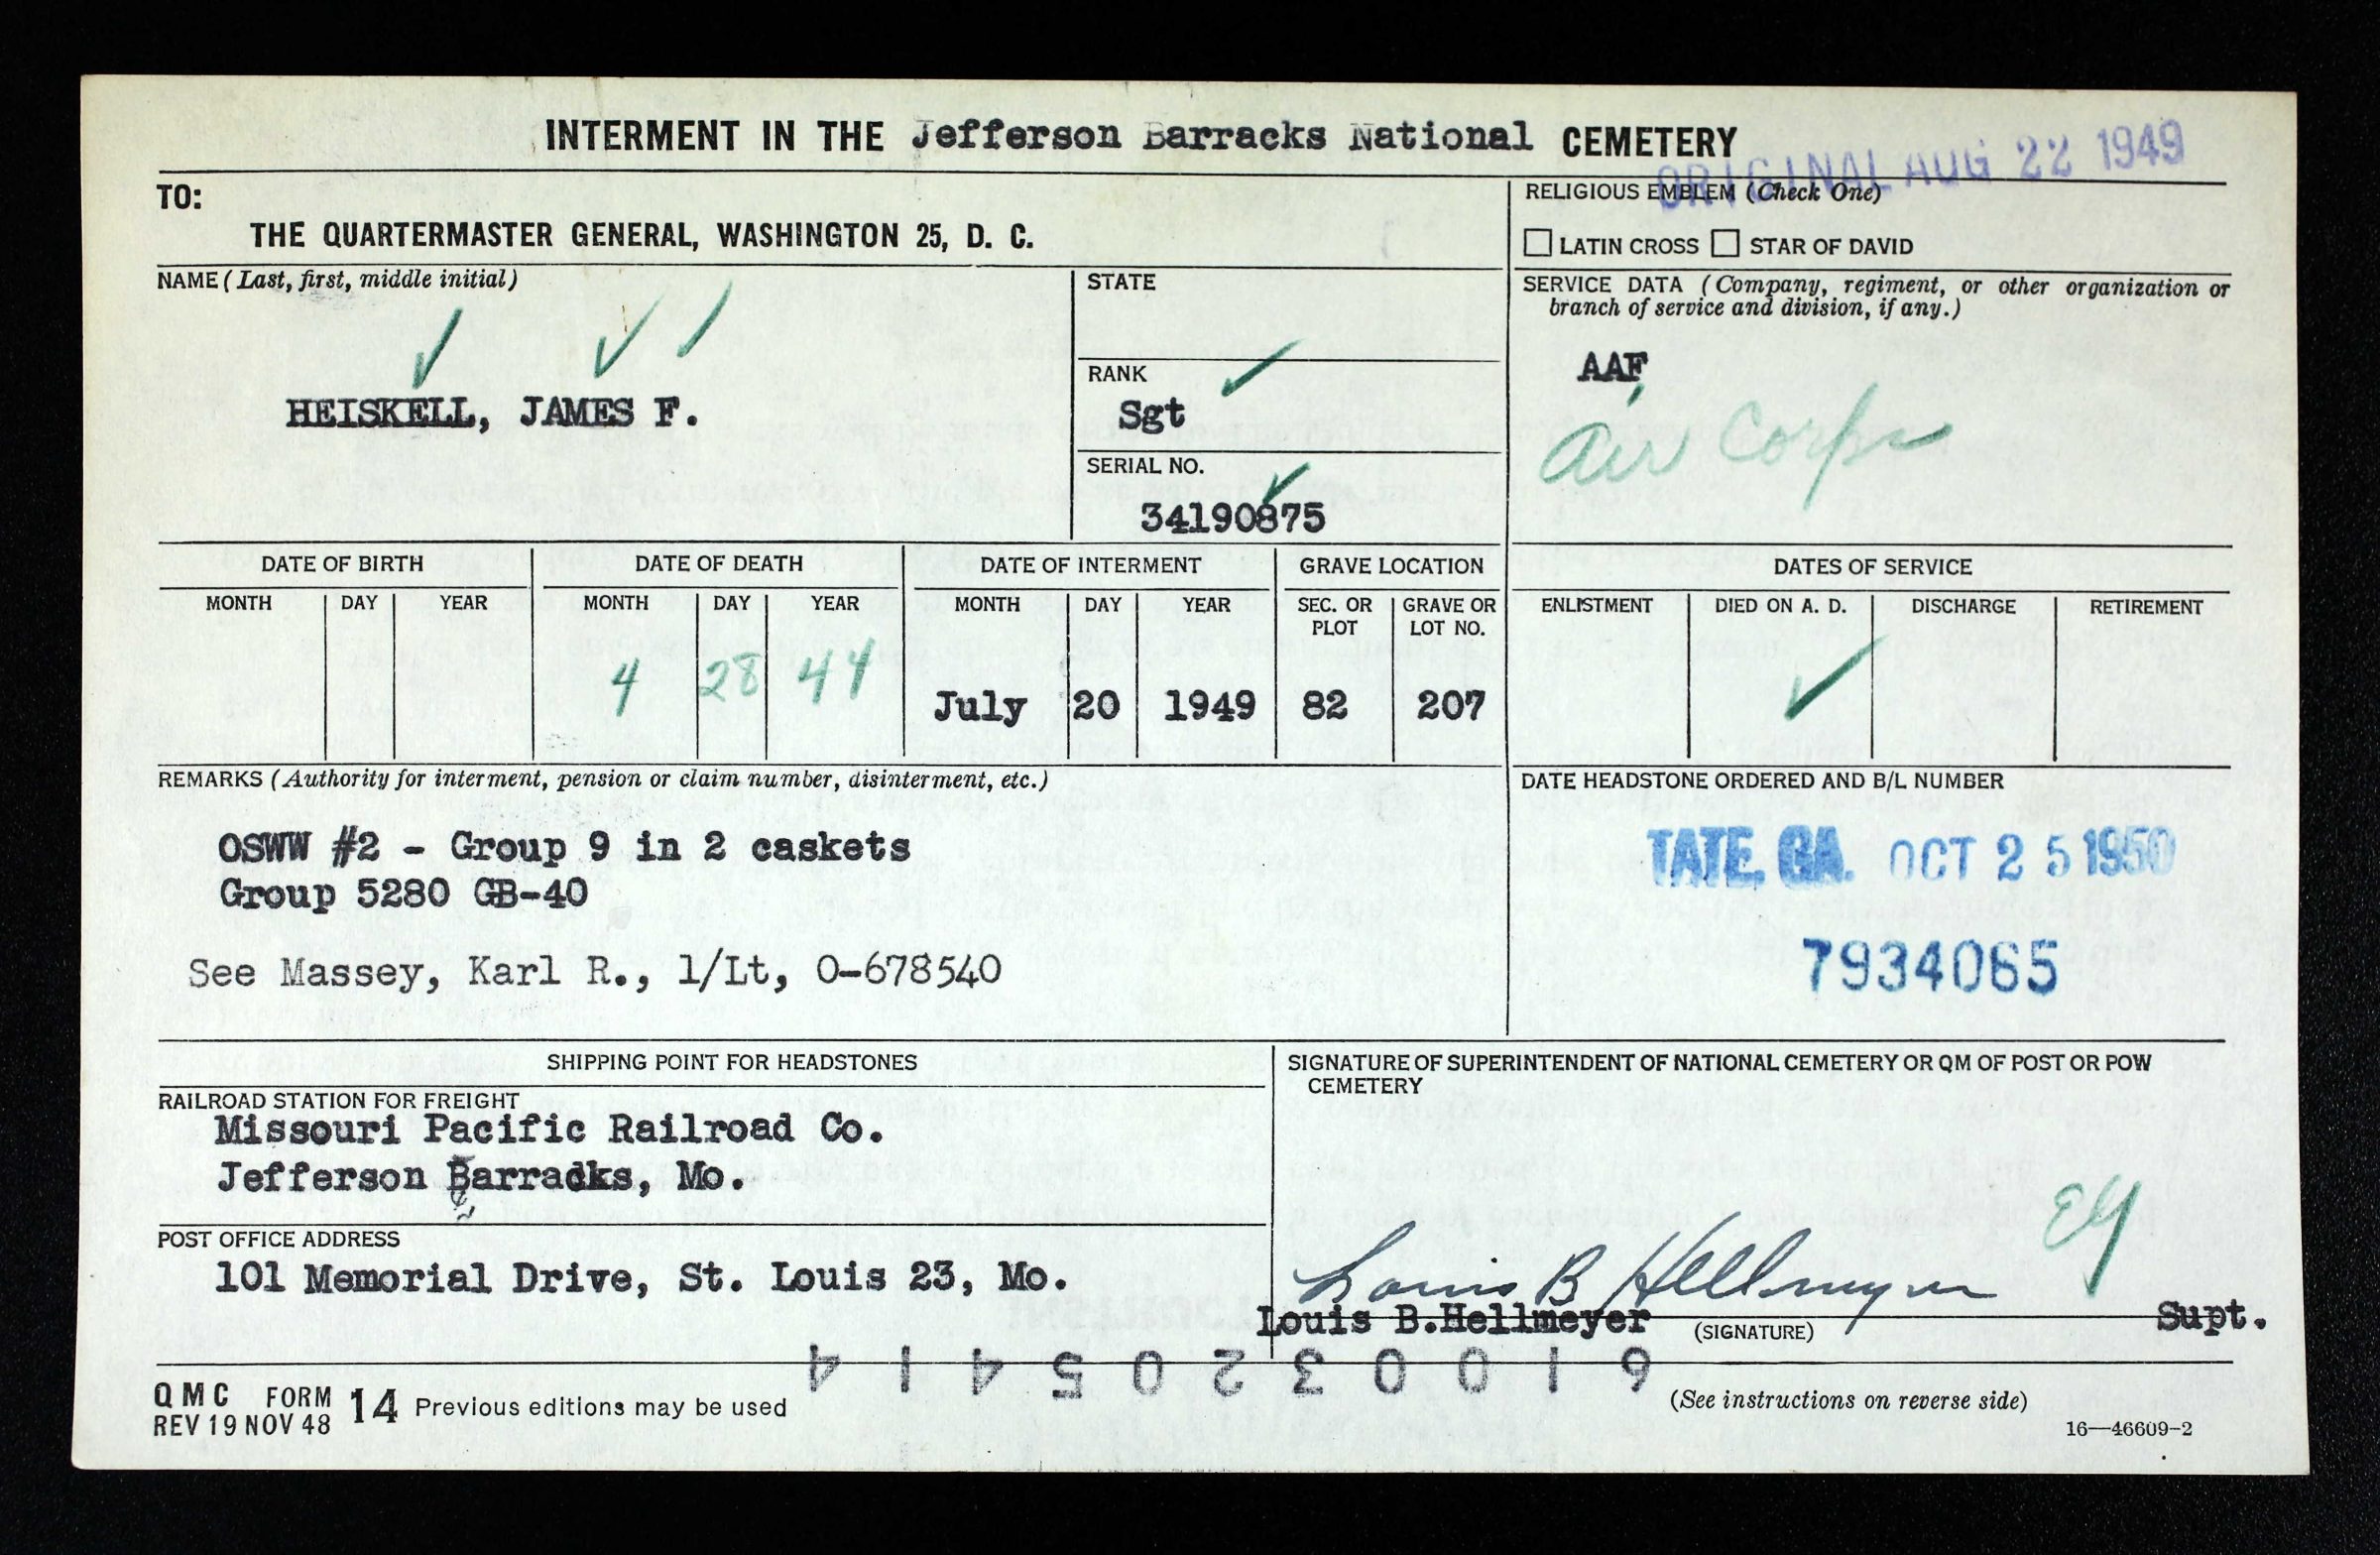 INTERMENT IN THE Jefferson Barracks National CEMETERY
ORIGINAL AUG 22 1949
TO:
THE QUARTERMASTER GENERAL, WASHINGTON 25, D. C.
RELIGIOUS EMBLEM (Check One)
☐ LATIN CROSS ☐ STAR OF DAVID
NAME (Last, first, middle initial)
HEISKELL, JAMES F.
STATE
RANK
Sgt
SERIAL NO.
34190875
SERVICE DATA (Company, regiment, or other organization or
branch of service and division, if any.)
AAF
Air Corps
DATE OF BIRTH
MONTH DAY YEAR
DATE OF DEATH
MONTH DAY YEAR
4 28 44
DATE OF INTERMENT
MONTH DAY YEAR
July 20 1949
GRAVE LOCATION
SEC. OR PLOT
GRAVE OR LOT NO.
82 207
DATES OF SERVICE
ENLISTMENT DIED ON A. D. DISCHARGE RETIREMENT
REMARKS (Authority for interment, pension or claim number, disinterment, etc.)
OSWW #2 - Group 9 in 2 caskets
Group 5280 GB-40
See Massey, Karl R., 1/Lt, O-678540
DATE HEADSTONE ORDERED AND B/L NUMBER
TATE, GA. OCT 25 1950
7934065
SHIPPING POINT FOR HEADSTONES
RAILROAD STATION FOR FREIGHT
Missouri Pacific Railroad Co.
Jefferson Barracks, Mo.
POST OFFICE ADDRESS
101 Memorial Drive, St. Louis 23, Mo.
SIGNATURE OF SUPERINTENDENT OF NATIONAL CEMETERY OR QM OF POST OR POW
CEMETERY
Louis B Hellmeyer
Louis B.Hellmeyer (SIGNATURE) Supt.
61003205414
QMC FORM 14 Previous editions may be used
REV 19 NOV 48
(See instructions on reverse side)
16—46609-2